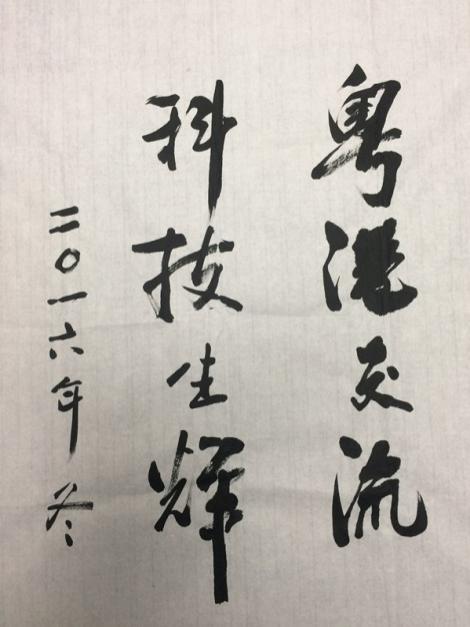 粤港交流
科技生辉
二〇一六年 冬